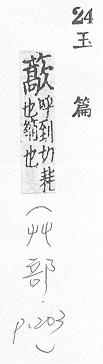 24 玉篇
藃呼到切耗也縮也
(艸部, p.203)